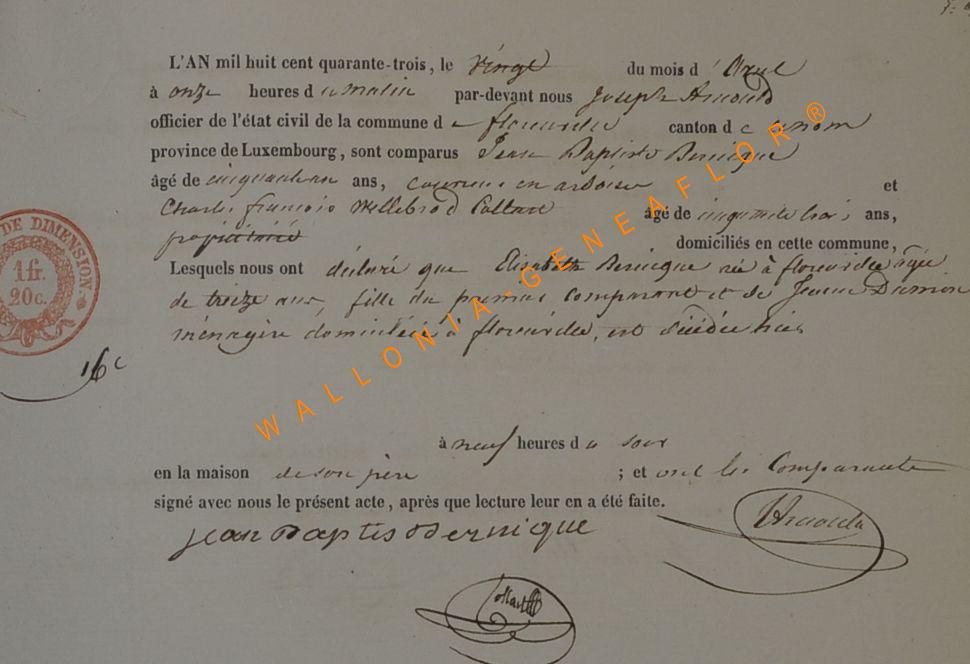 L'AN mil huit cent quarante-trois, le vingt du mois d'Avril
à onze heures du matin par-devant nous Joseph Arnould
officier de l'état civil de la commune de florenville canton de
province de Luxembourg, sont comparus Jean Baptiste Bernique
âgé de cinquante ans, couvreur en ardoise et
Charles françois Willebrod Collard âgé de cinquante trois ans,
propriétaire domiciliés en cette commune,
Lesquels nous ont déclaré que Elisabeth Bernique née à florenville agée
de treize ans, fille du premier comparant et de Jeanne
ménagère domiciliée à florenville, est décédée hier
à neuf heures du soir
en la maison de son père ; et ont les Comparants
signé avec nous le présent acte, après que lecture leur en a été faite.
jean Baptis Bernique
Arnould
Collard
DE DIMENSION
1 fr.
20 c.
16 c
WALLONIA-GENEAFLOR®